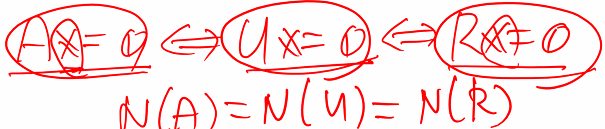 Ax=0 ⟺ Ux=0 ⟺ Rx=0
N(A)=N(U)=N(R)